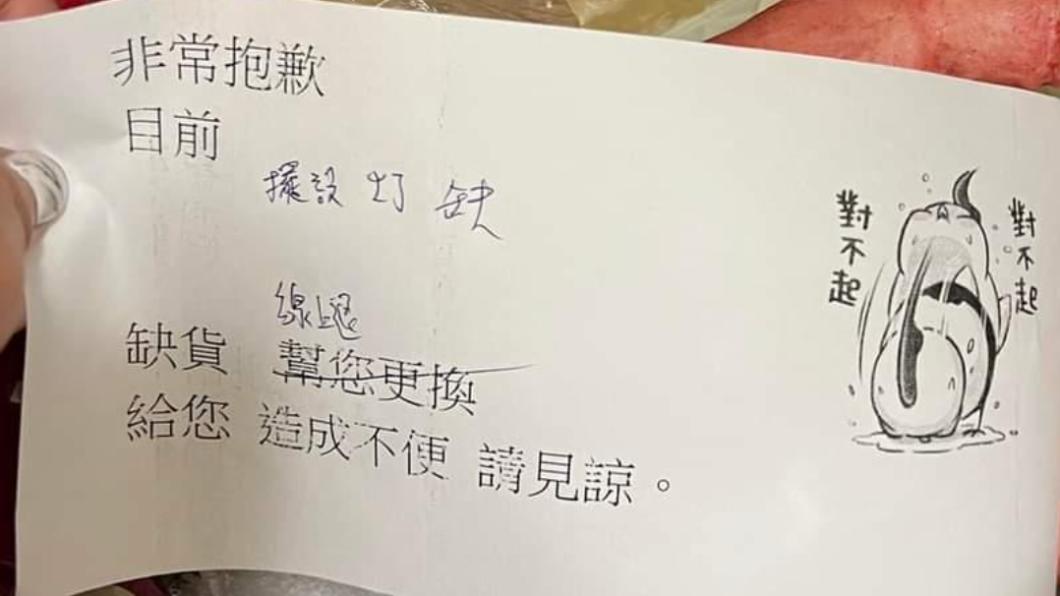 非常抱歉
目前
擺設 灯 缺
線上退
缺貨 幫您更換
給您 造成不便 請見諒。
對不起
對不起